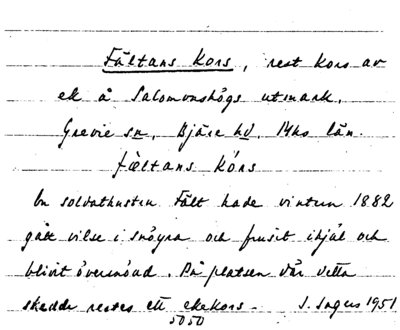 Fältans kors, rest kors av
ek å Salomonshögs utmark,
Grevie sn, Bjäre hd, Mhs län.
fàltans kórs
En soldathustru Fält hade vintern 1882
gått vilse i snöyra och frusit ihjäl och
blivit översnöad. På platsen där detta
skedde restes ett ekekors - J. Ingers 1951
5050